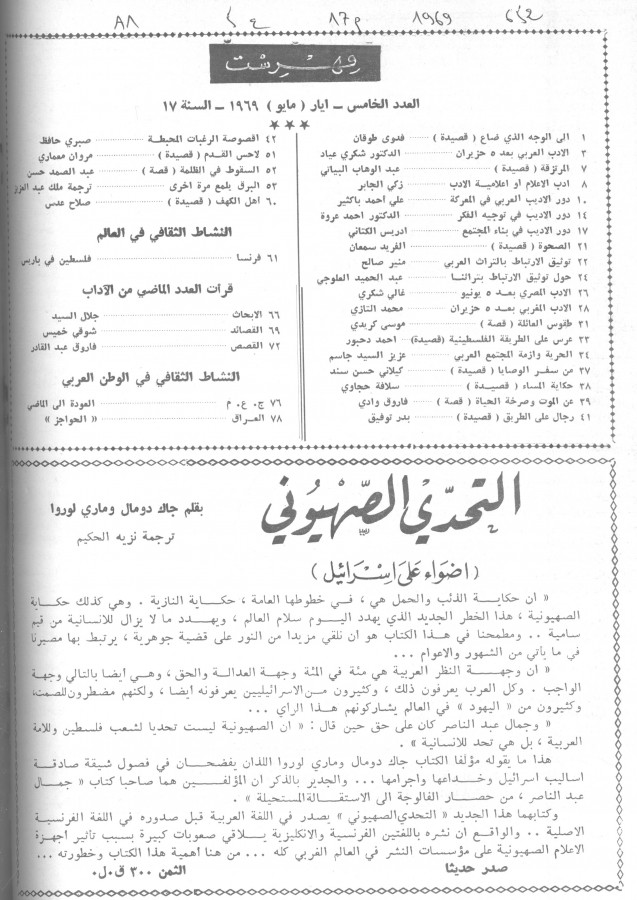 1969
فهرست
العدد الخامس – ايار ( مايو ) ١٩٦٩ – السنة ١٧
١ الى الوجه الذي ضاع ( قصيدة ) فدوى طوقان
٣ الادب العربي بعد ٥ حزيران الدكتور شكري عياد
٧ المرتزقة ( قصيدة ) عبد الوهاب البياتي
٨ ادب الاعلام او اعلامية الادب زكي الجابر
١٠ دور الاديب العربي في المعركة علي احمد باكثير
١٤ دور الاديب في توجيه الفكر الدكتور احمد عروة
١٧ دور الاديب في بناء المجتمع ادريس الكتاني
٢١ الصحوة ( قصيدة ) الفريد سمعان
٢٢ توثيق الارتباط بالتراث العربي منير صالح
٢٤ حول توثيق الارتباط بتراثنا عبد الحميد العلوجي
٢٦ الادب المصري بعد ٥ يونيو غالي شكري
٢٨ الادب المغربي بعد ٥ حزيران محمد التازي
٣١ طقوس العائلة ( قصة ) موسى كريدي
٣٣ عرس على الطريقة الفلسطينية (قصيدة) احمد دحبور
٣٤ الحرية وازمة المجتمع العربي عزيز السيد جاسم
٣٧ من سفر الوصايا ( قصيدة ) كيلاني حسن سند
٣٨ حكاية المساء ( قصيدة ) سلافة حجاوي
٣٩ عن الموت وصرخة الحياة ( قصة ) فاروق وادي
٤١ رجال على الطريق ( قصيدة ) بدر توفيق
٤٢ اقصوصة الرغبات المحبطة صبري حافظ
٥١ لاحس القدم ( قصيدة ) مروان معماري
٥٢ السقوط في الظلمة ( قصة ) عبد الصمد حسن
٥٣ البرق يلمع مرة اخرى ترجمة ملك عبد العزيز
٦٠ اهل الكهف ( قصيدة ) صلاح عدس
النشاط الثقافي في العالم
٦١ فرنسا فلسطين في باريس
قرأت العدد الماضي من الآداب
٦٦ الابحاث جلال السيد
٦٩ القصائد شوقي خميس
٧٢ القصص فاروق عبد القادر
النشاط الثقافي في الوطن العربي
٧٦ ج٠ ع٠ م العودة الى الماضي
٧٨ العراق « الحواجز »
التحدي الصهيوني
بقلم جاك دومال وماري لوروا
ترجمة نزيه الحكيم
( اضواء على اسرائيل )
« ان حكاية الذئب والحمل هي ، في خطوطها العامة ، حكاية النازية . وهي كذلك حكاية
الصهيونية ، هذا الخطر الجديد الذي يهدد اليوم سلام العالم ، ويهدد ما لا يزال للانسانية من قيم
سامية .. ومطمحنا في هذا الكتاب هو ان نلقي مزيدا من النور على قضية جوهرية ، يرتبط بها مصيرنا
في ما يأتي من الشهور والاعوام ...
« ان وجهة النظر العربية هي مئة في المئة وجهة العدالة والحق ، وهي ايضا بالتالي وجهة
الواجب . وكل العرب يعرفون ذلك ، وكثيرون من الاسرائيليين يعرفونه ايضا ، ولكنهم مضطرون للصمت،
وكثيرون من « اليهود » في العالم يشاركونهم هذا الراي ...
« وجمال عبد الناصر كان على حق حين قال : « ان الصهيونية ليست تحديا لشعب فلسطين وللامة
العربية ، بل هي تحد للانسانية » .
هذا ما يقوله مؤلفا الكتاب جاك دومال وماري لوروا اللذان يفضحان في فصول شيقة صادقة
اساليب اسرائيل وخداعها واجرامها ... والجدير بالذكر ان المؤلفين هما صاحبا كتاب « جمال
عبد الناصر ، من حصار الفالوجة الى الاستقالة المستحيلة » .
وكتابهما هذا الجديد « التحدي الصهيوني » يصدر في اللغة العربية قبل صدوره في اللغة الفرنسية
الاصلية .. والواقع ان نشره باللغتين الفرنسية والانكليزية يلاقي صعوبات كبيرة بسبب تأثير اجهزة
الاعلام الصهيونية على مؤسسات النشر في العالم الغربي كله ... من هنا أهمية هذا الكتاب وخطورته ...
صدر حديثا الثمن ٣٠٠ ق٠ل٠